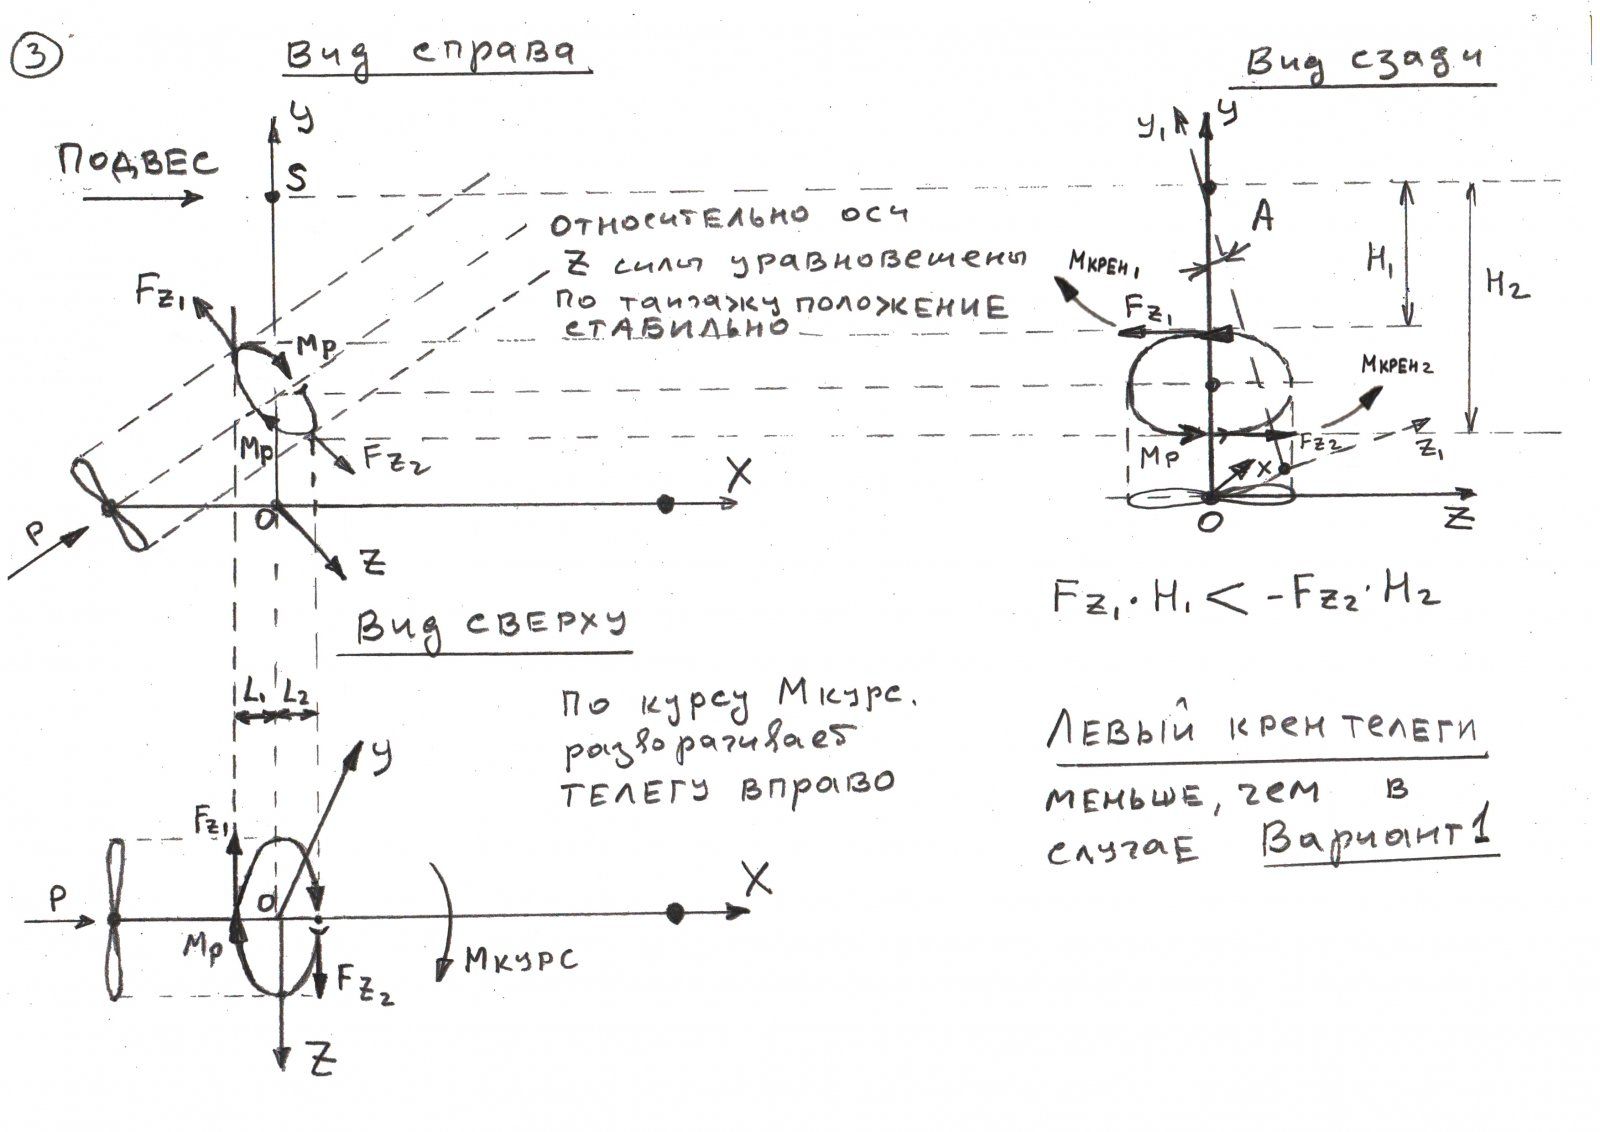 3
Вид справа
Вид сзади
У
У₁
У
ПОДВЕС
S
A
ОТНОСИТЕЛЬНО ОСИ
Z СИЛЫ УРАВНОВЕШЕНЫ
ПО ТАНГАЖУ ПОЛОЖЕНИЕ
СТАБИЛЬНО
Fz₁
Mр
Mр
Fz₂
X
P
O
Z
Mкрен₁
Fz₁
H₁
H₂
Mкрен₂
Mр
Fz₂
X
Z₁
O
Z
Fz₁·H₁ < -Fz₂·H₂
Вид СВЕРХУ
L₁
L₂
По курсу Mкурс.
разворачивает
ТЕЛЕГУ ВПРАВО
ЛЕВЫЙ КРЕН ТЕЛЕГИ
МЕНЬШЕ, чем в
случаЕ Вариант 1
У
Fz₁
P
O
X
Mр
Fz₂
Mкурс
Z